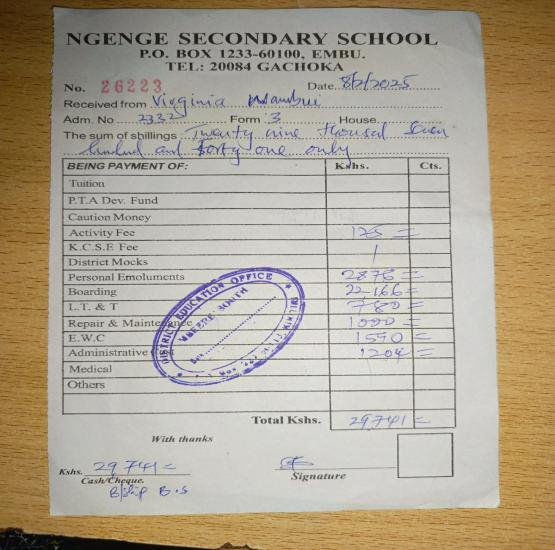 NGENGE SECONDARY SCHOOL
P.O. BOX 1233-60100, EMBU.
TEL: 20084 GACHOKA
No. 26223 Date 8/2/2025
Received from Virginia Wambui
Adm. No 2332 Form 3 House
The sum of shillings Twenty nine thousand seven
hundred and forty one only
BEING PAYMENT OF: Kshs. Cts.
Tuition
P.T.A Dev. Fund
Caution Money
Activity Fee 125 =
K.C.S.E Fee
District Mocks
Personal Emoluments 2876 =
Boarding 22,166 =
L.T. & T 780 =
Repair & Maintenance 1000 =
E.W.C 1590 =
Administrative 1204 =
Medical
Others
DISTRICT EDUCATION OFFICE
MBEERE SOUTH
Total Kshs. 29,741 =
With thanks
Kshs. 29,741 =
Cash/Cheque. Signature
B/slip B.S